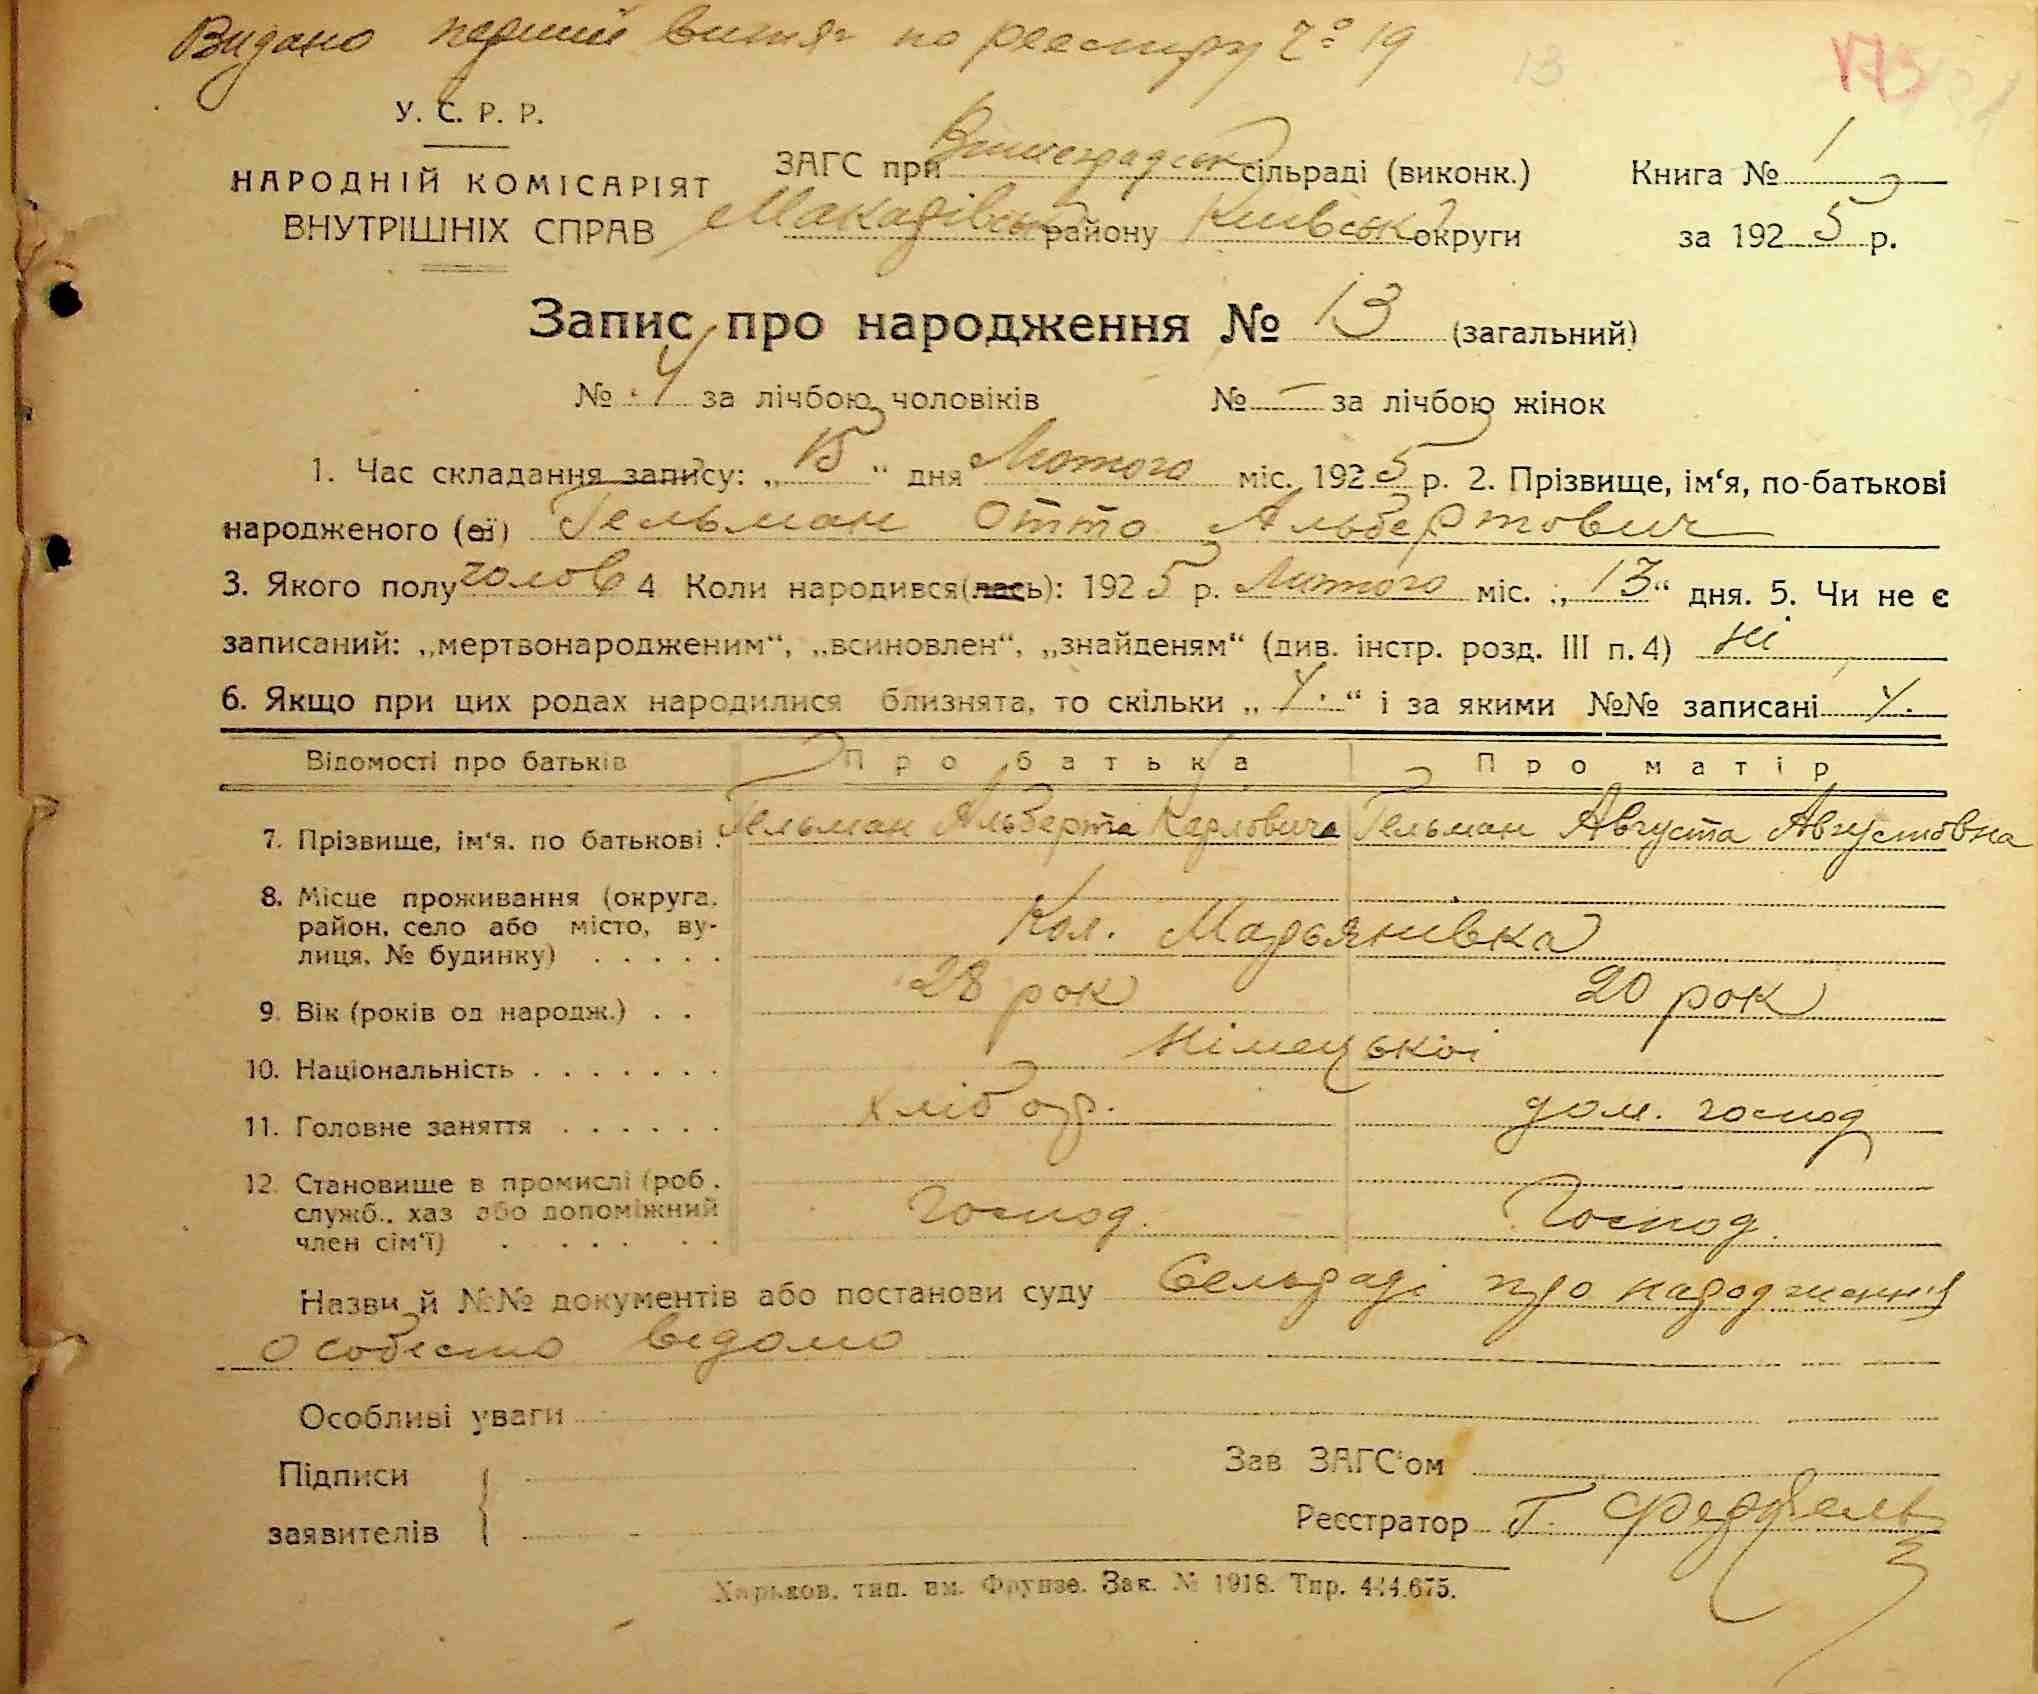 Видано перший витяг по реєстру № 19
13 173
У. С. Р. Р.
НАРОДНІЙ КОМІСАРІЯТ
ВНУТРІШНІХ СПРАВ
ЗАГС при Виноградськ сільраді (виконк.) Книга № 1
Макарівськ району Київськ округи за 1925 р.
Запис про народження № 13 (загальний)
№ 7 за лічбою чоловіків № — за лічбою жінок
1. Час складання запису: „15“ дня Лютого міс. 1925 р. 2. Прізвище, ім‘я, по-батькові
народженого (ої) Гельман Отто Альбертович
3. Якого полу чолов 4 Коли народився(лась): 1925 р. Лютого міс. „13“ дня. 5. Чи не є
записаний: „мертвонародженим“, „всиновлен“, „знайденям“ (див. інстр. розд. III п. 4) ні
6. Якщо при цих родах народилися близнята, то скільки „ “ і за якими №№ записані
Відомості про батьків Про батька Про матір
7. Прізвище, ім‘я. по батькові . Гельман Альберта Карловича Гельман Августа Августовна
8. Місце проживання (округа.
район, село або місто, ву-
лиця, № будинку) . . . . . Кол. Марьянівка
9. Вік (років од народж.) . . 28 рок 20 рок
10. Національність . . . . . . . Німецької
11. Головне заняття . . . . . . хлібор. дом. господ
12. Становище в промислі (роб.
служб., хаз або допоміжний
член сім‘ї) . . . . . . Господ. Господ.
Назви й №№ документів або постанови суду Сельраді про народження
особесто відомо
Особливі уваги
Підписи
заявителів
Зав ЗАГС‘ом
Реєстратор Г.
Харьков, тип. им. Фрунзе. Зак. № 1918. Тир. 444.675.